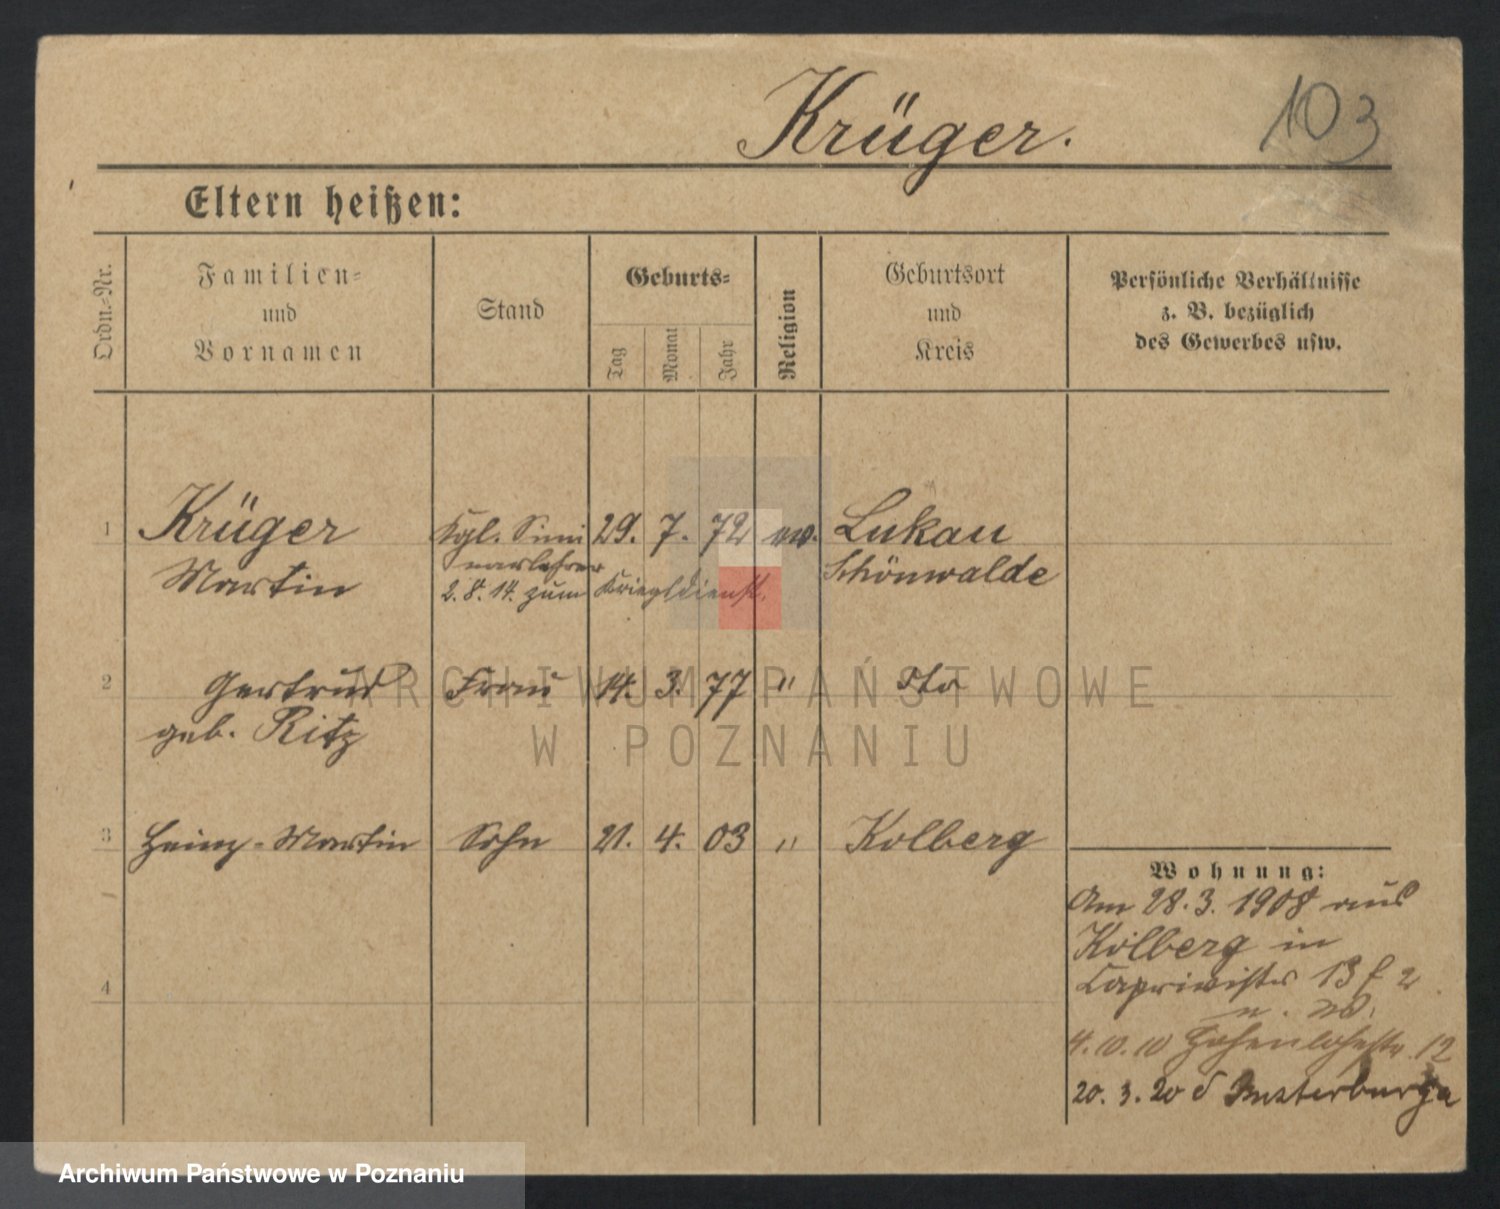 Krüger.
103
Eltern heißen:
Ordn.-Nr.
Familien-
und
Vornamen
Stand
Geburts-
Tag
Monat
Jahr
Religion
Geburtsort
und
Kreis
Persönliche Verhältnisse
z. B. bezüglich
des Gewerbes usw.
1 Krüger Kgl. Semi 29. 7. 72 ev. Lukau
Martin narlehrer Schönwalde
2. 8. 14. zum Kriegsdienst.
2 Gertrud Frau 14. 3. 77 " Sto
geb. Ritz
3 Heinz-Martin Sohn 21. 4. 03 " Kolberg
4
Wohnung:
Am 28.3.1908 aus
Kolberg in
Caprivistr 13
4.10.10 Hohenlohestr. 12
20.3.20 Insterburg
ARCHIWUM PAŃSTWOWE
W POZNANIU
Archiwum Państwowe w Poznaniu